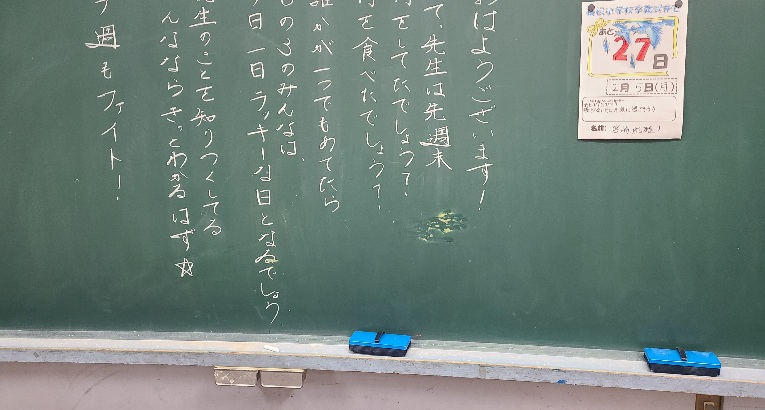 おはようございます！
て、先生は先週末
をしてたでしょう？
を食べたでしょう？
誰かが一つでもあてたら
もの3のみんなは、
日一日ラッキーな日となるでしょう
先生のことを知りつくしてる
んなならきっとわかるはず☆
週もファイト！
あと
27日
2月5日(月)
名前: